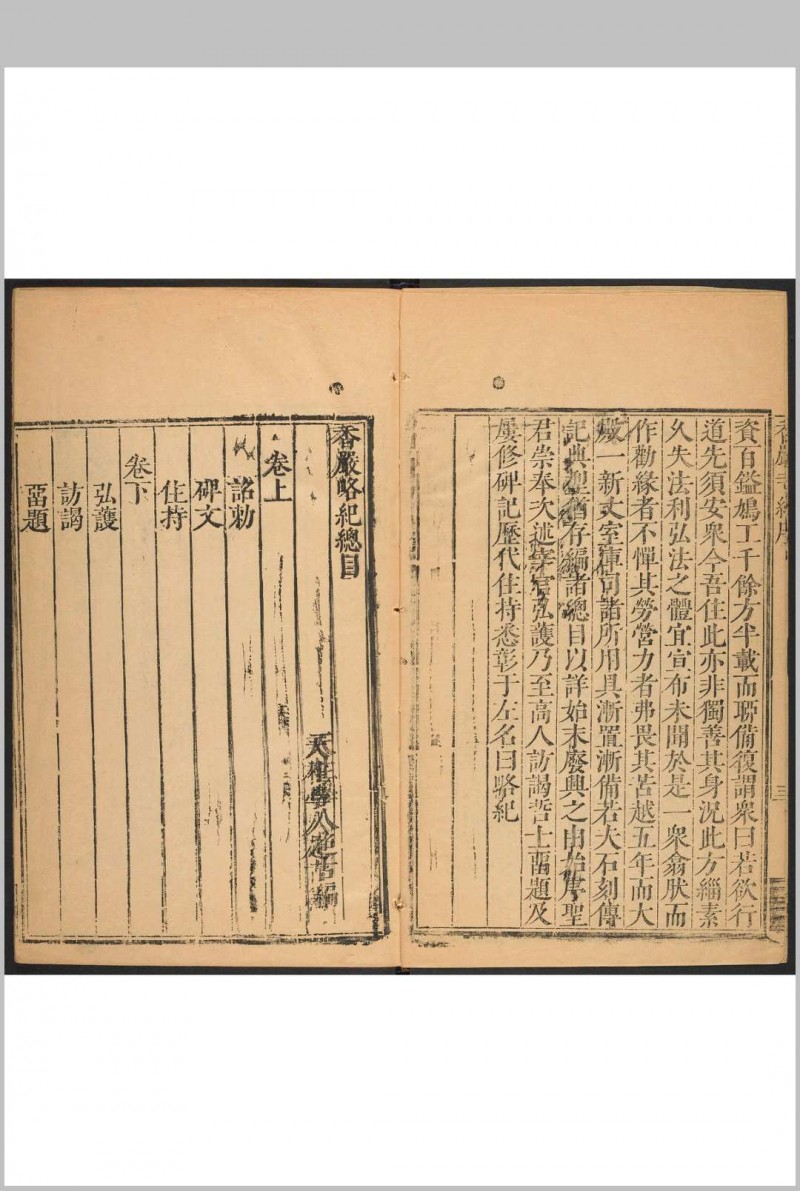 資百鎰鳩工千餘方半載而聊備復謂衆曰若欲行
道先須安衆今吾住此亦非獨善其身況此方緇素
久失法利弘法之體宜宣布未聞於是一衆翕肰而
作勸緣者不憚其勞營力者弗畏其苦越五年而大
殿一新丈室庫司諸所用具漸置漸備若大石刻傳
記典型猶存編諸總目以詳始末廢興之由始序聖
君崇奉次述宰官弘護乃至高人訪謁哲士畱題及
屢修碑記歷代住持悉彰于左名曰略紀
三
香嚴略紀總目
天 學人超 編
卷上
詔勅
碑文
住持
卷下
弘護
訪謁
畱題